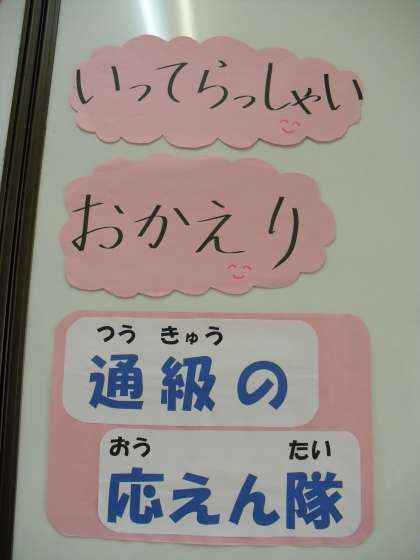 いってらっしゃい
おかえり
つう きゅう
通級の
おう たい
応えん隊